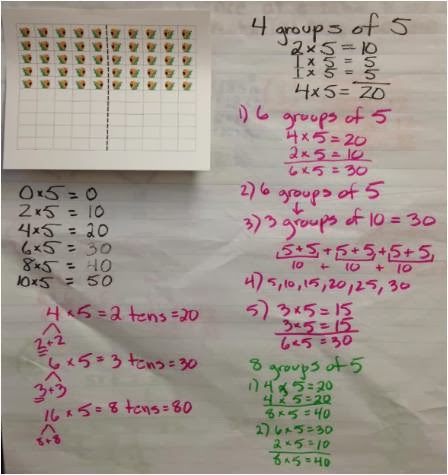 4 groups of 5
2×5 = 10
1×5 = 5
1×5 = 5
4×5 = 20
1) 6 groups of 5
4×5=20
2×5=10
6×5=30
2) 6 groups of 5
↓
3) 3 groups of 10 = 30
5+5+5+5+5+5
10 + 10 + 10
4) 5,10,15,20,25,30
5) 3×5=15
3×5=15
6×5=30
8 groups of 5
1) 4×5=20
4×5=20
8×5=40
2) 6×5=30
2×5=10
8×5=40
0×5 = 0
2×5 = 10
4×5 = 20
6×5 = 30
8×5 = 40
10×5 = 50
4×5=2 tens=20
2+2
6×5=3 tens=30
3+3
16×5=8 tens=80
8+8